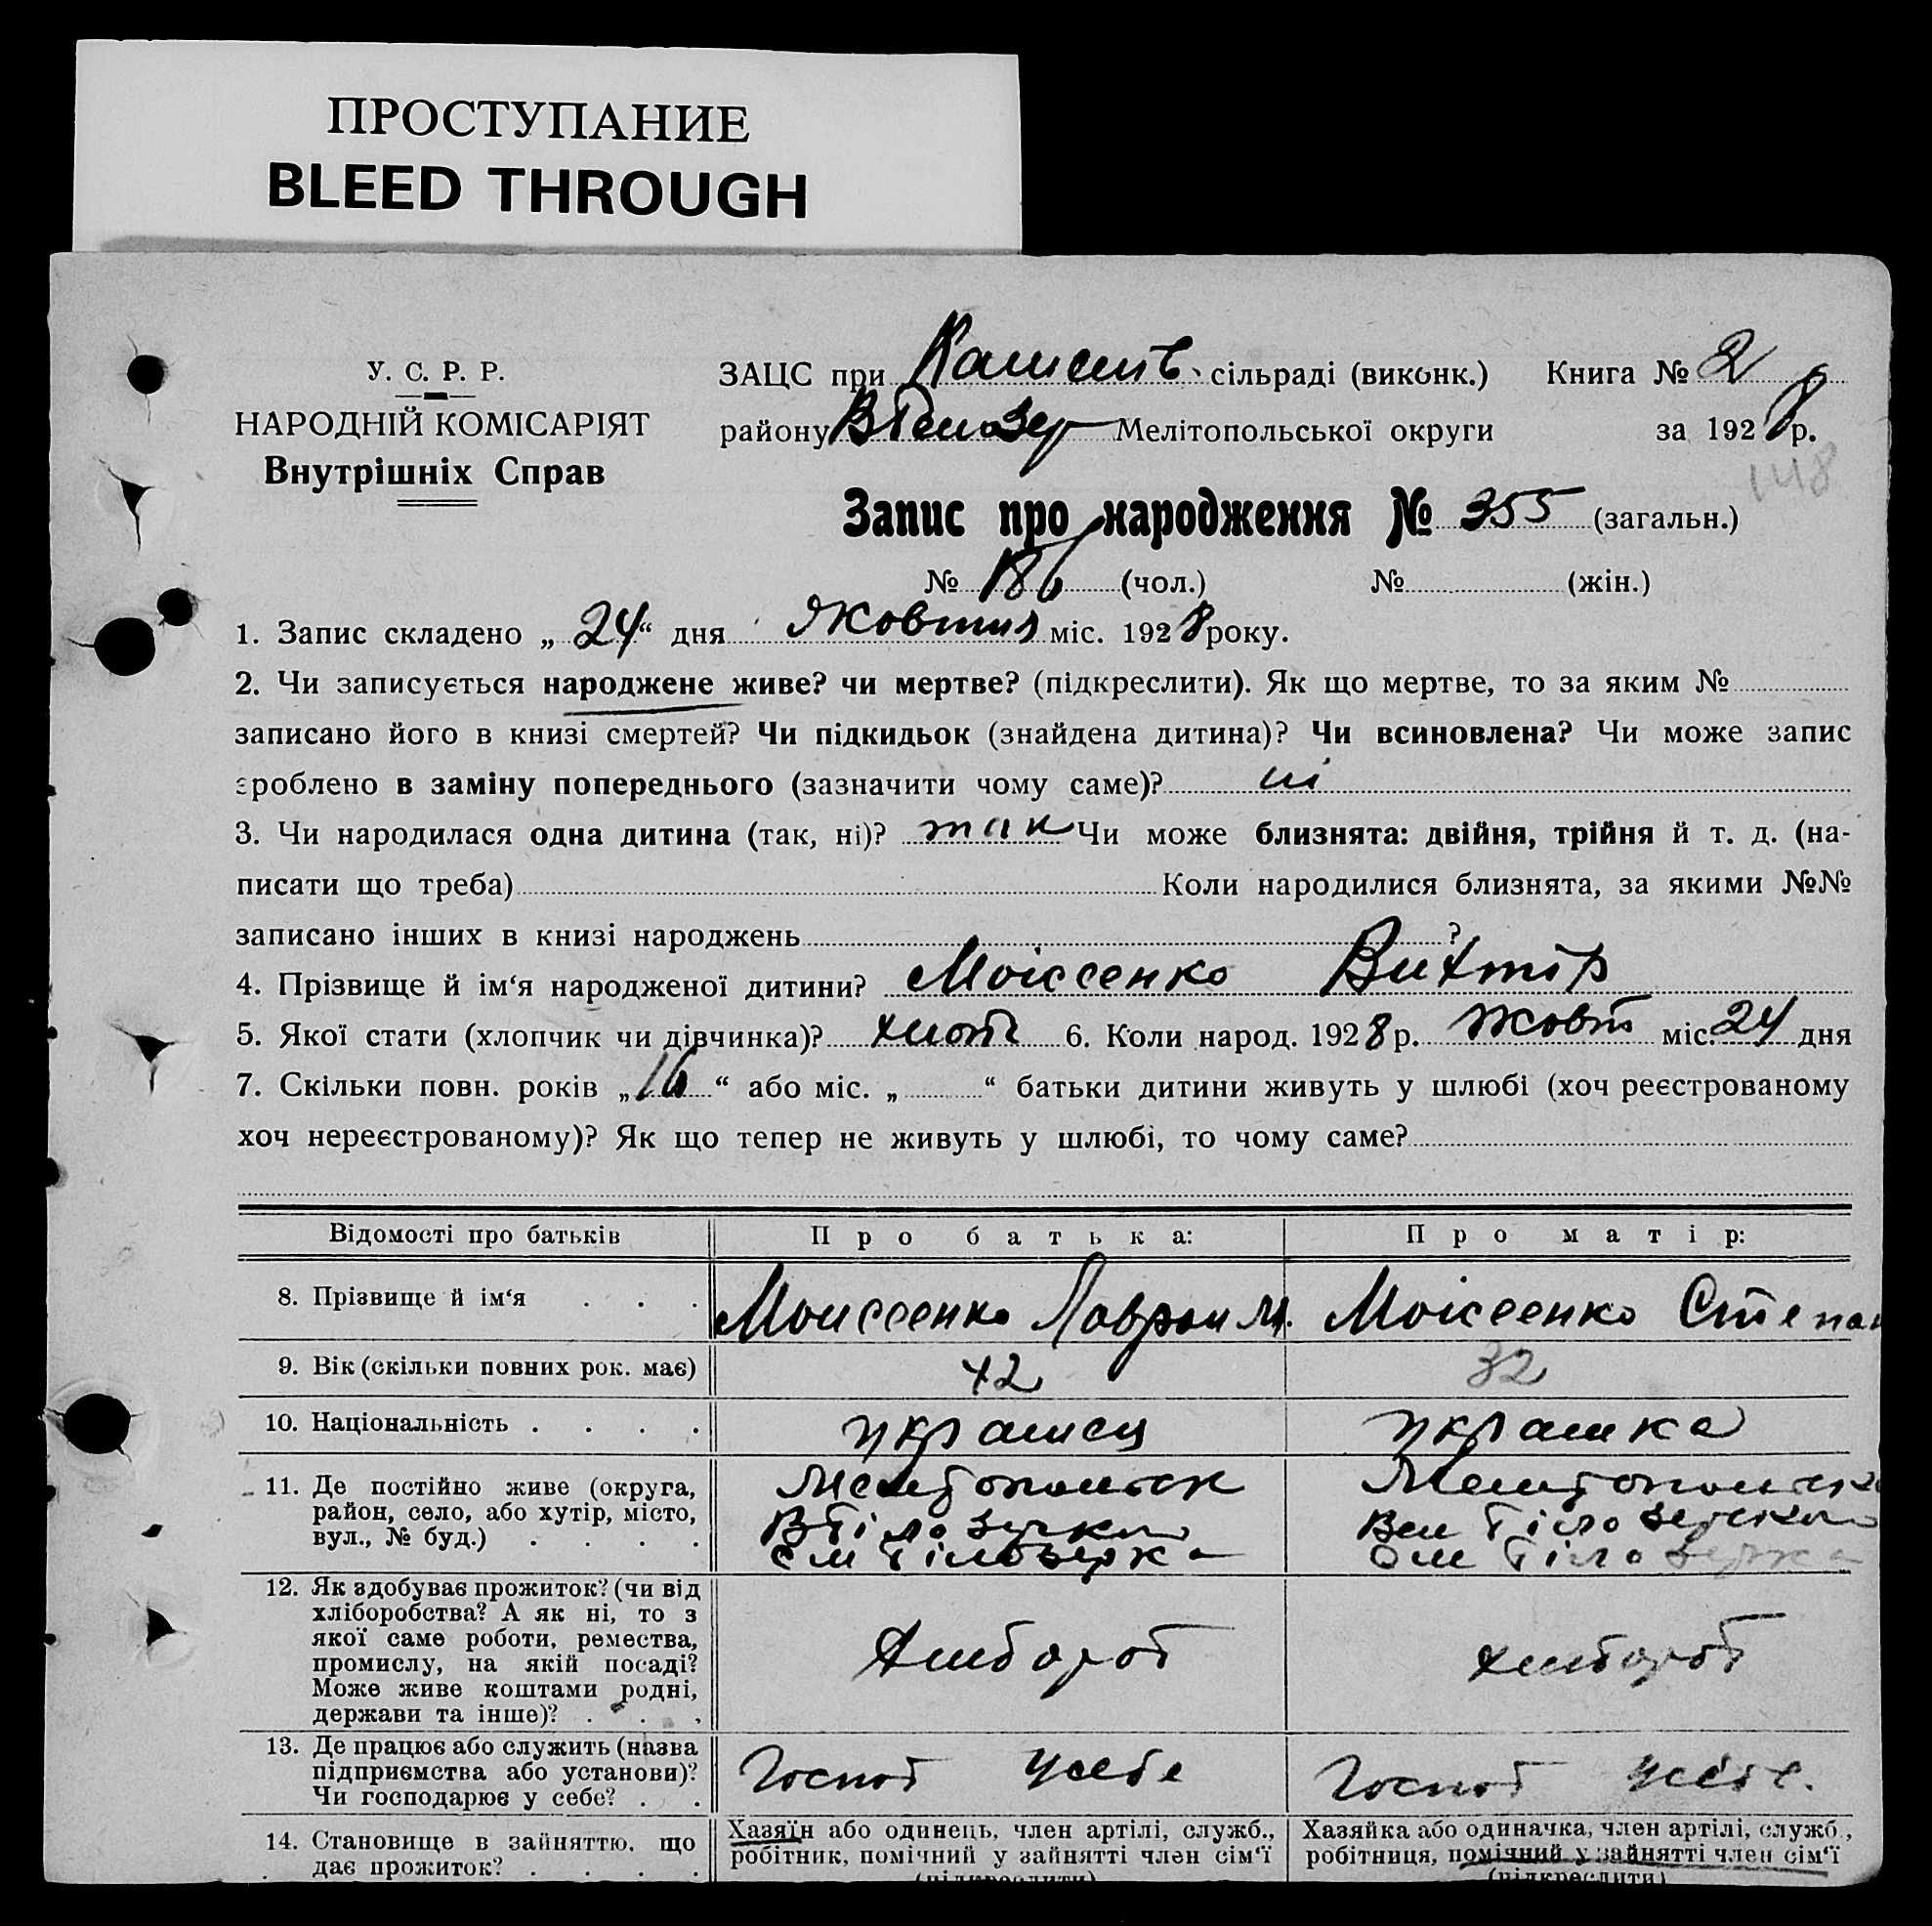 ПРОСТУПАНИЕ
BLEED THROUGH
У. С. Р. Р.
НАРОДНІЙ КОМІСАРІЯТ
Внутрішніх Справ
ЗАЦС при сільраді (виконк.) Книга № 2
району Мелітопольської округи за 1928 р.
148
Запис про народження № 355 (загальн.)
№ 186 (чол.) № (жін.)
1. Запис складено „ 24 “ дня Жовтня міс. 1928 року.
2. Чи записується народжене живе? чи мертве? (підкреслити). Як що мертве, то за яким №
записано його в книзі смертей? Чи підкидьок (знайдена дитина)? Чи всиновлена? Чи може запис
зроблено в заміну попереднього (зазначити чому саме)? ні
3. Чи народилася одна дитина (так, ні)? так Чи може близнята: двійня, трійня й т. д. (на-
писати що треба) Коли народилися близнята, за якими №№
записано інших в книзі народжень ?
4. Прізвище й ім‘я народженої дитини? Моісеенко Вихтір
5. Якої стати (хлопчик чи дівчинка)? хлоп 6. Коли народ. 1928 р. Жовт міс. 24 дня
7. Скільки повн. років „ 16 “ або міс. „ “ батьки дитини живуть у шлюбі (хоч реєстрованому
хоч нереєстрованому)? Як що тепер не живуть у шлюбі, то чому саме?
Відомості про батьків Про батька: Про матір:
8. Прізвище й ім‘я . . . Моисеенко М. Моісеенко Степан
9. Вік (скільки повних рок. має) 42 32
10. Національність . . . . украінец украінка
11. Де постійно живе (округа,
район, село, або хутір, місто,
вул., № буд.) . . . .
Мелітопольск Мелітопольск
Білозерка Білозерка
12. Як здобуває прожиток? (чи від
хліборобства? А як ні, то з
якої саме роботи, ремества,
промислу, на якій посаді?
Може живе коштами родні,
держави та інше)? . . .
хлібороб хлібороб
13. Де працює або служить (назва
підприємства або установи)?
Чи господарює у себе? . .
Господ усебе Господ усебе.
14. Становище в зайняттю, що
дає прожиток? . . . .
Хазяїн або одинець, член артілі, служб.,
робітник, помічний у зайнятті член сім‘ї
(підкреслити)
Хазяйка або одиначка, член артілі, служб.,
робітниця, помічний у зайнятті член сім‘ї
(підкреслити)